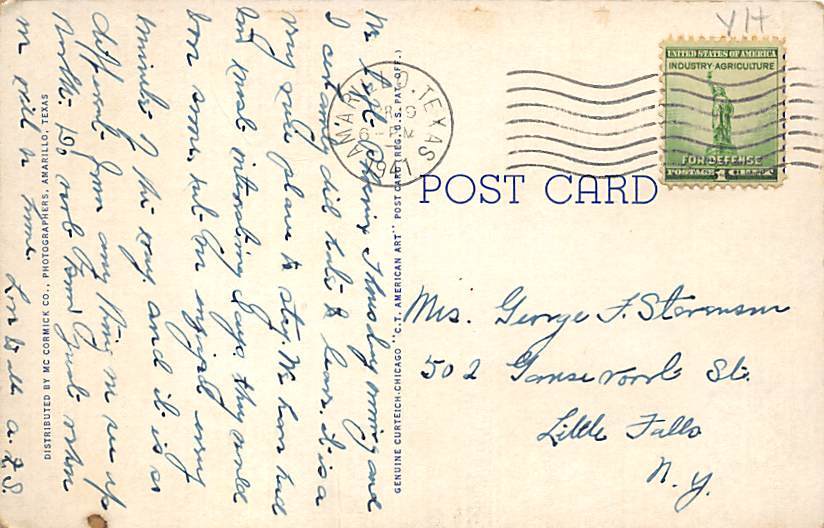 VH
UNITED STATES OF AMERICA
INDUSTRY·AGRICULTURE
FOR DEFENSE
POSTAGE 1 CENT
AMARILLO, TEXAS
6 - PM
1941
POST CARD
Mrs. George F. Stevenson
502 Gansevoort St.
Little Falls
N. Y.
We left Thursday morning and
I certainly did hate to leave. it is a
very nice place to stay. We have had
long most interesting days. they would
been some, but I'm enjoyed every
minute of the way. and it is so
different from any thing we see up
North. Do not know just when
we will be home.
Love to all. A. F. S.
GENUINE CURTEICH-CHICAGO "C.T. AMERICAN ART" POST CARD (REG. U. S. PAT. OFF.)
DISTRIBUTED BY MC CORMICK CO., PHOTOGRAPHERS, AMARILLO, TEXAS